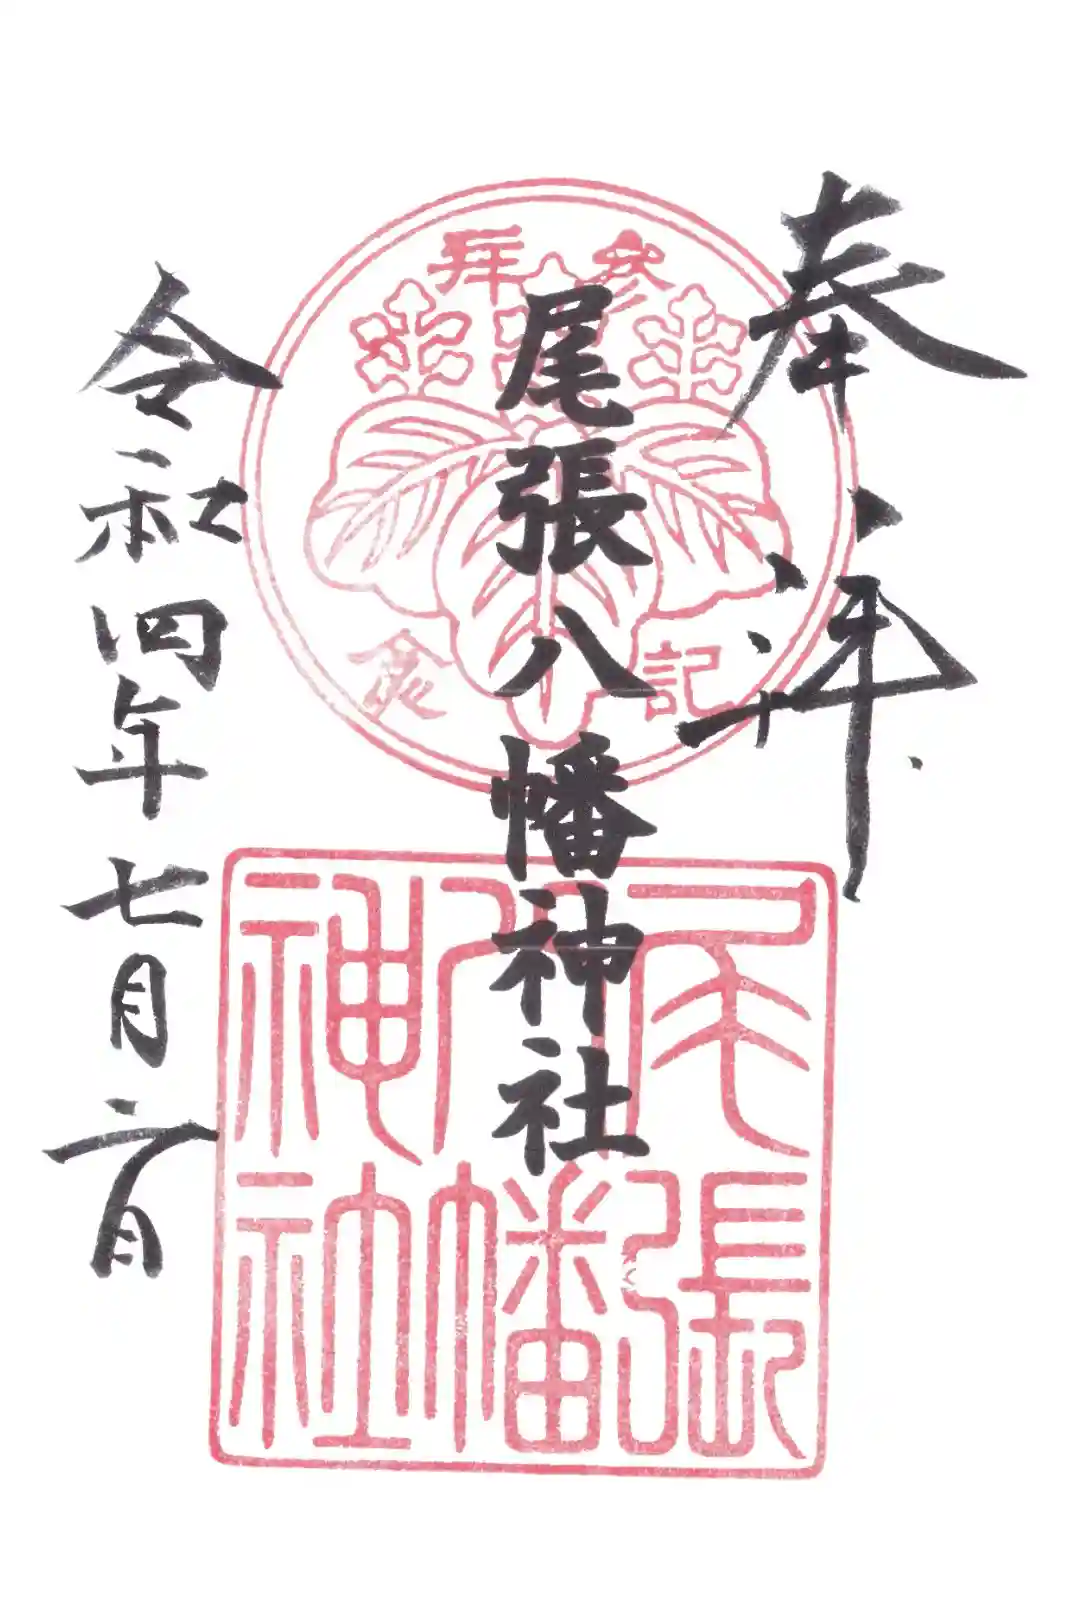 奉拝
参拝
記念
尾張八幡神社
尾張
八幡
神社
令和四年七月二日